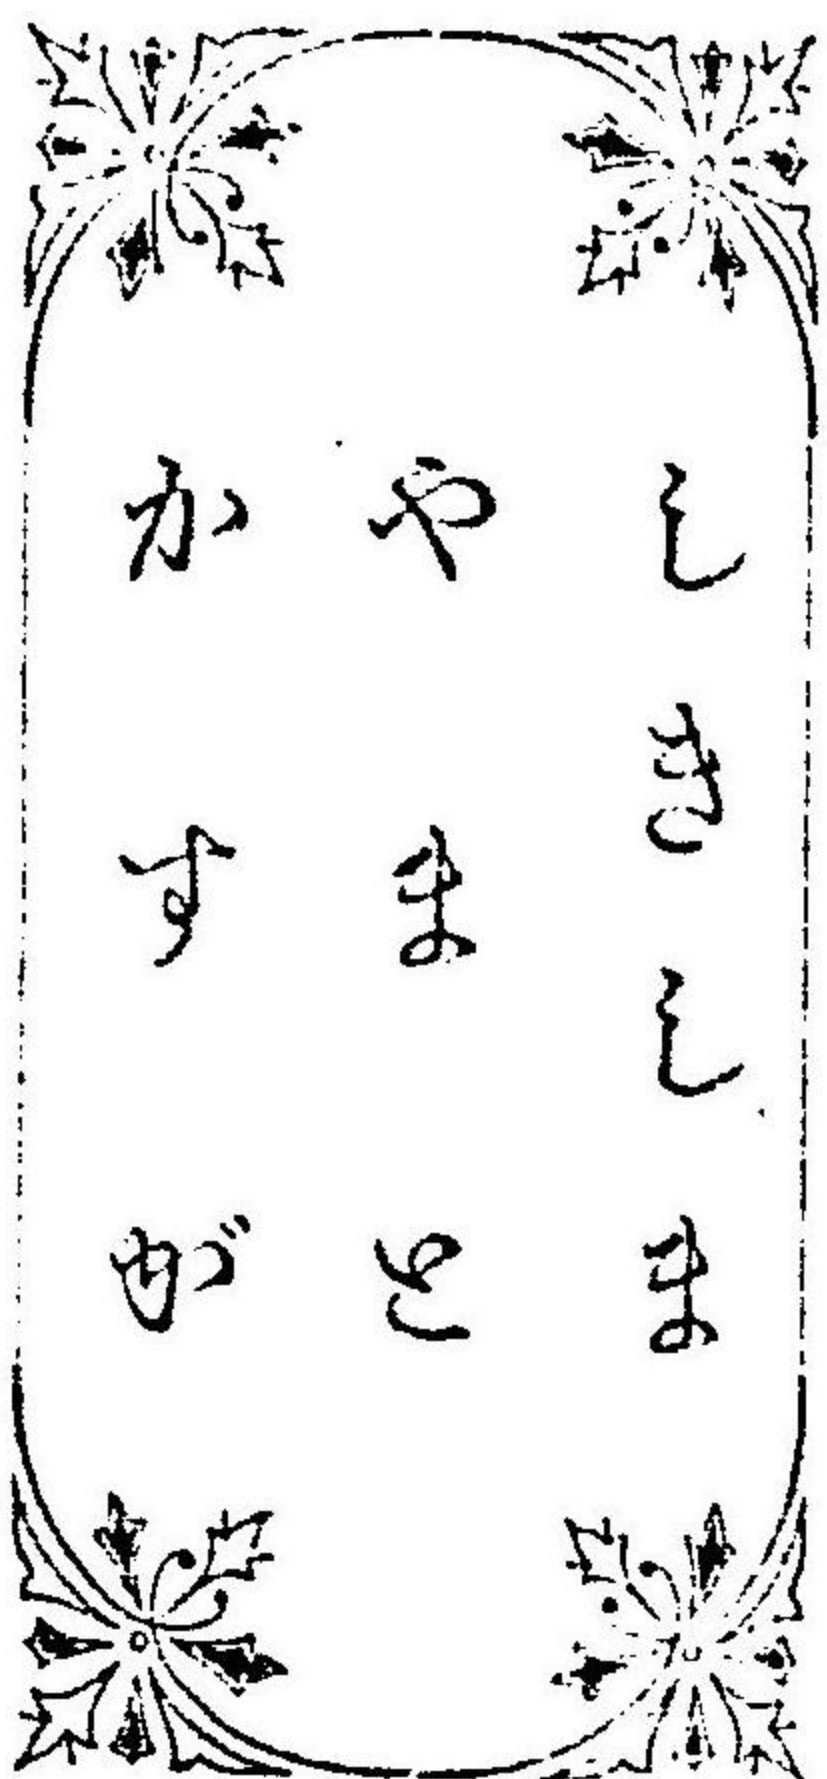 しきしま
やまと
かすが